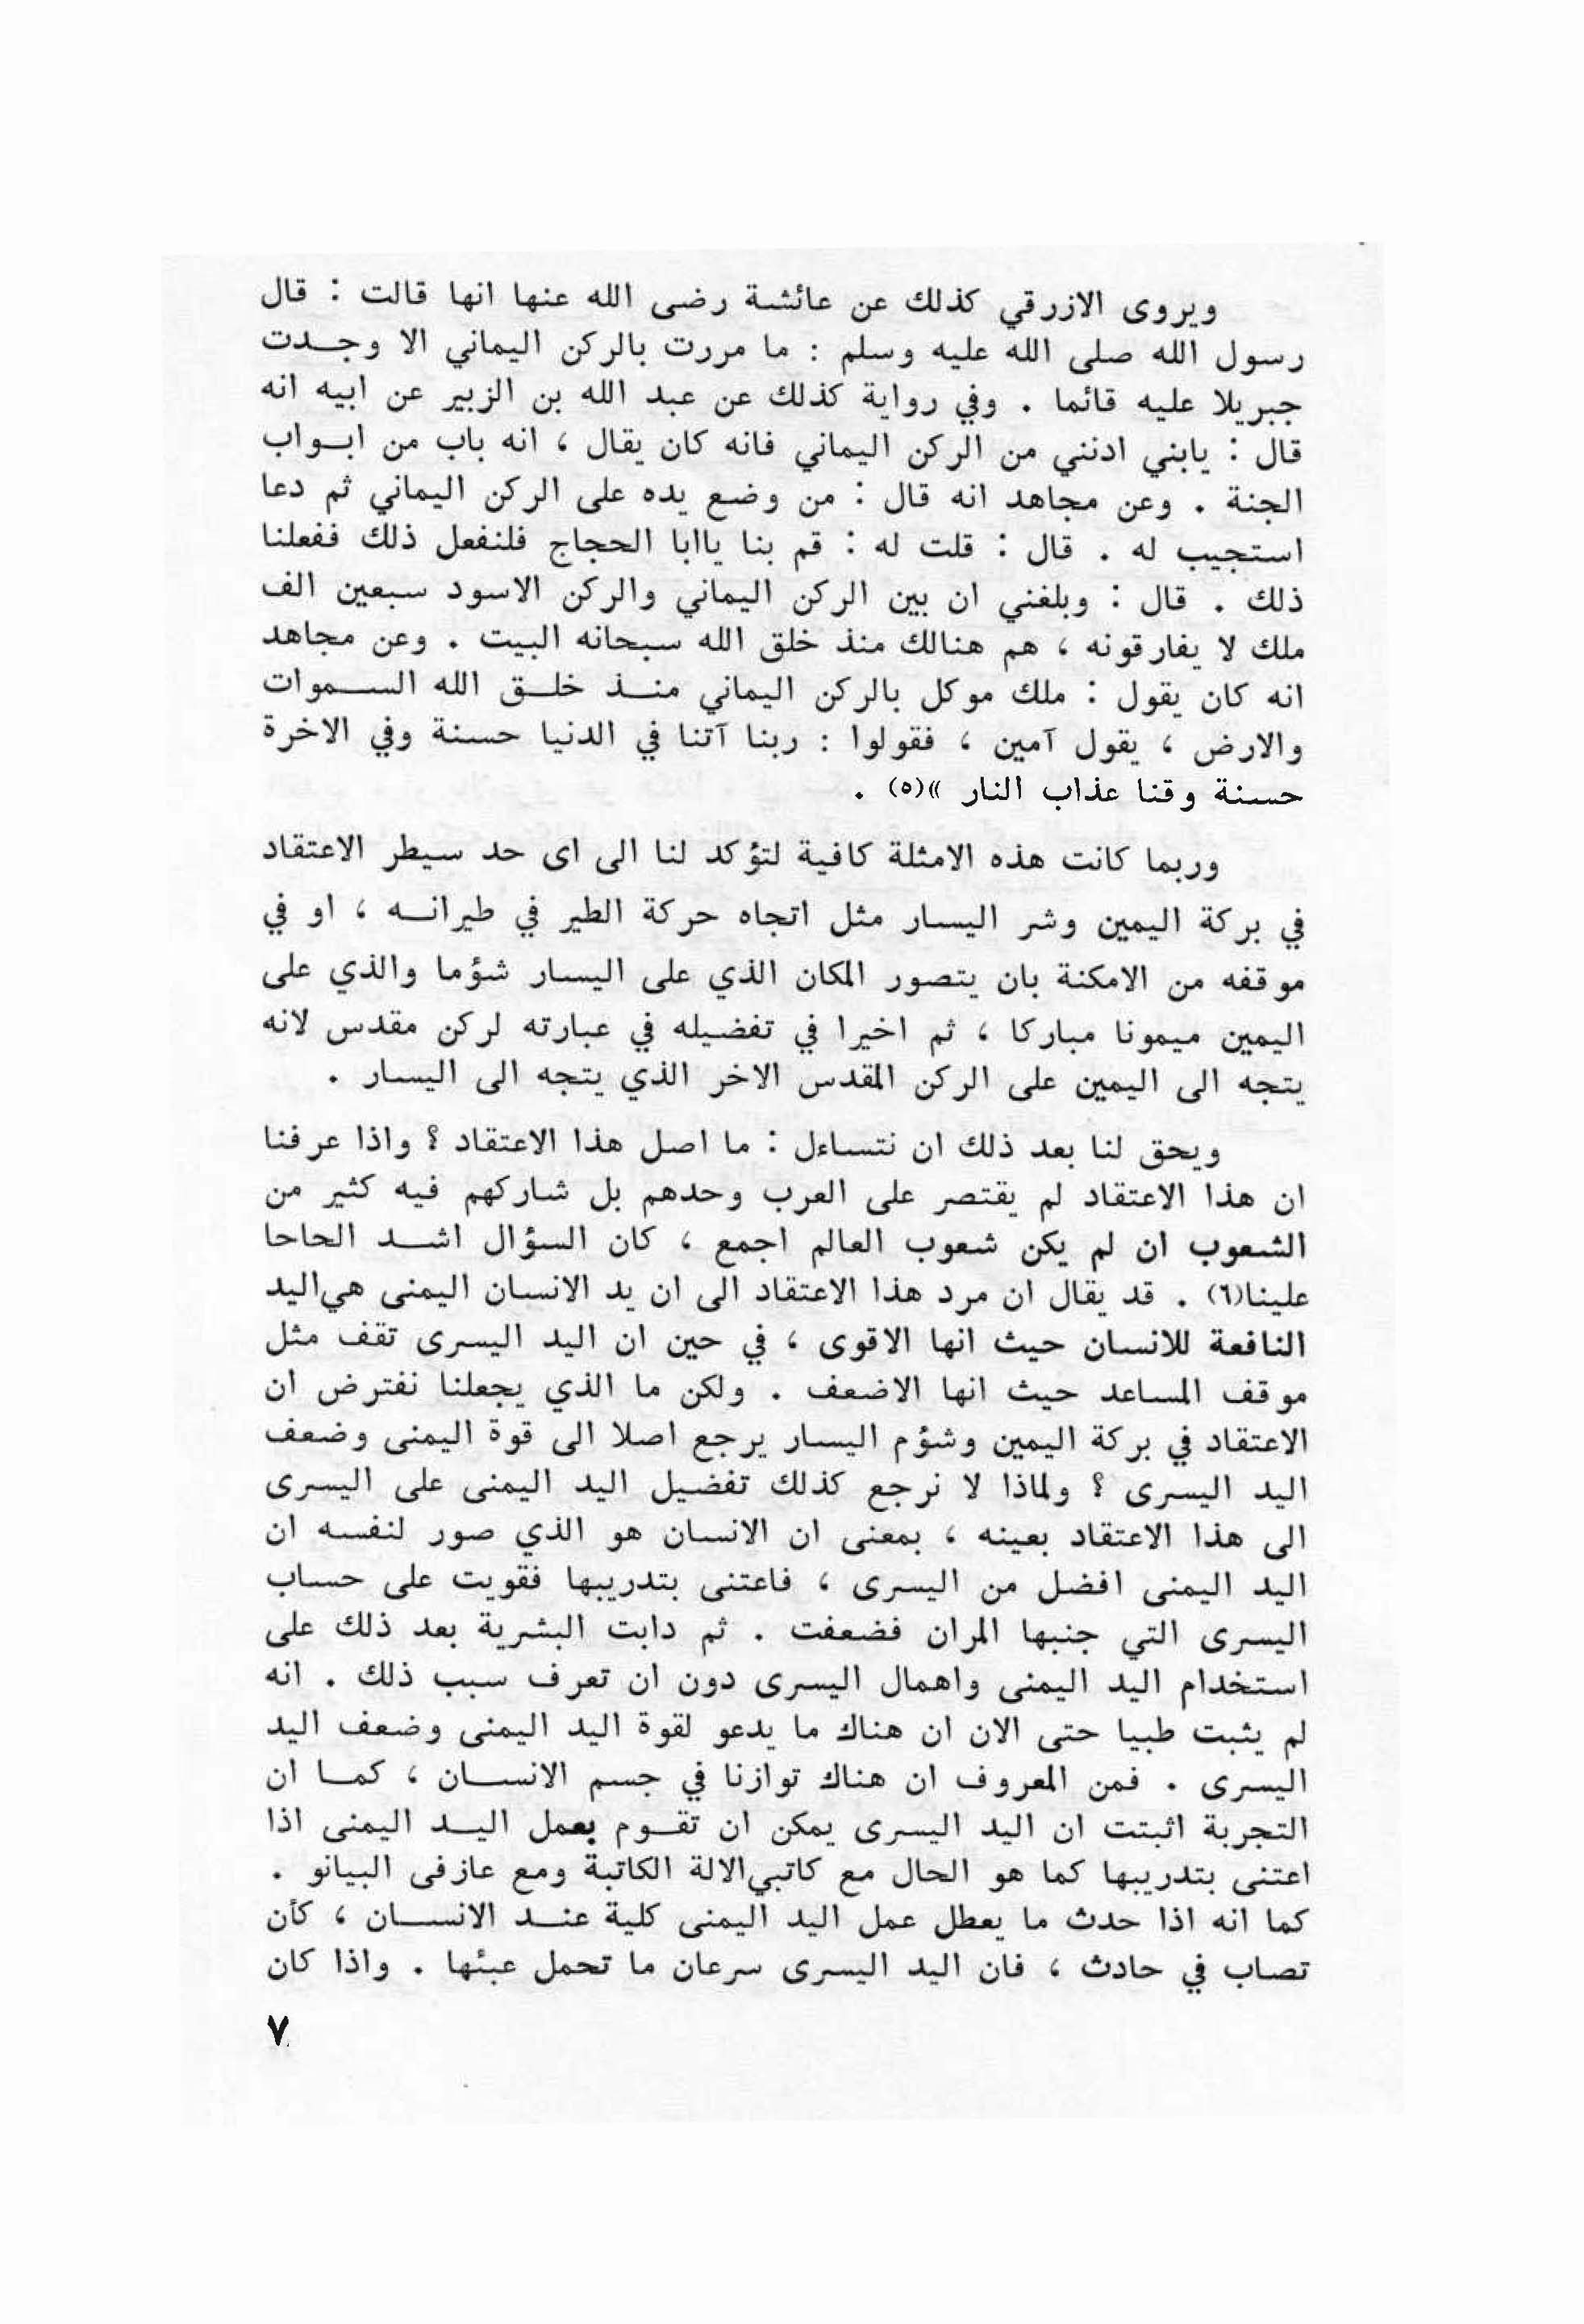 ويروى الازرقي كذلك عن عائشة رضى الله عنها انها قالت : قال
رسول الله صلى الله عليه وسلم : ما مررت بالركن اليماني الا وجــدت
جبريلا عليه قائما . وفي رواية كذلك عن عبد الله بن الزبير عن ابيه انه
قال : يابني ادنني من الركن اليماني فانه كان يقال ، انه باب من ابــواب
الجنة . وعن مجاهد انه قال : من وضع يده على الركن اليماني ثم دعا
استجيب له . قال : قلت له : قم بنا ياابا الحجاج فلنفعل ذلك ففعلنا
ذلك . قال : وبلغني ان بين الركن اليماني والركن الاسود سبعين الف
ملك لا يفارقونه ، هم هنالك منذ خلق الله سبحانه البيت . وعن مجاهد
انه كان يقول : ملك موكل بالركن اليماني منــذ خلــق الله الســموات
والارض ، يقول آمين ، فقولوا : ربنا آتنا في الدنيا حسنة وفي الاخرة
حسنة وقنا عذاب النار »(٥) .
وربما كانت هذه الامثلة كافية لتؤكد لنا الى اى حد سيطر الاعتقاد
في بركة اليمين وشر اليسار مثل اتجاه حركة الطير في طيرانــه ، او في
موقفه من الامكنة بان يتصور المكان الذي على اليسار شؤما والذي على
اليمين ميمونا مباركا ، ثم اخيرا في تفضيله في عبارته لركن مقدس لانه
يتجه الى اليمين على الركن المقدس الاخر الذي يتجه الى اليسار .
ويحق لنا بعد ذلك ان نتساءل : ما اصل هذا الاعتقاد ؟ واذا عرفنا
ان هذا الاعتقاد لم يقتصر على العرب وحدهم بل شاركهم فيه كثير من
الشعوب ان لم يكن شعوب العالم اجمع ، كان السؤال اشــد الحاحا
علينا(٦) . قد يقال ان مرد هذا الاعتقاد الى ان يد الانسان اليمنى هي اليد
النافعة للانسان حيث انها الاقوى ، في حين ان اليد اليسرى تقف مثل
موقف المساعد حيث انها الاضعف . ولكن ما الذي يجعلنا نفترض ان
الاعتقاد في بركة اليمين وشؤم اليسار يرجع اصلا الى قوة اليمنى وضعف
اليد اليسرى ؟ ولماذا لا نرجع كذلك تفضيل اليد اليمنى على اليسرى
الى هذا الاعتقاد بعينه ، بمعنى ان الانسان هو الذي صور لنفسه ان
اليد اليمنى افضل من اليسرى ، فاعتنى بتدريبها فقويت على حساب
اليسرى التي جنبها المران فضعفت . ثم دابت البشرية بعد ذلك على
استخدام اليد اليمنى واهمال اليسرى دون ان تعرف سبب ذلك . انه
لم يثبت طبيا حتى الان ان هناك ما يدعو لقوة اليد اليمنى وضعف اليد
اليسرى . فمن المعروف ان هناك توازنا في جسم الانســان ، كمــا ان
التجربة اثبتت ان اليد اليسرى يمكن ان تقــوم بعمل اليــد اليمنى اذا
اعتنى بتدريبها كما هو الحال مع كاتبي الالة الكاتبة ومع عازفى البيانو .
كما انه اذا حدث ما يعطل عمل اليد اليمنى كلية عنــد الانســان ، كأن
تصاب في حادث ، فان اليد اليسرى سرعان ما تحمل عبئها . واذا كان
٧